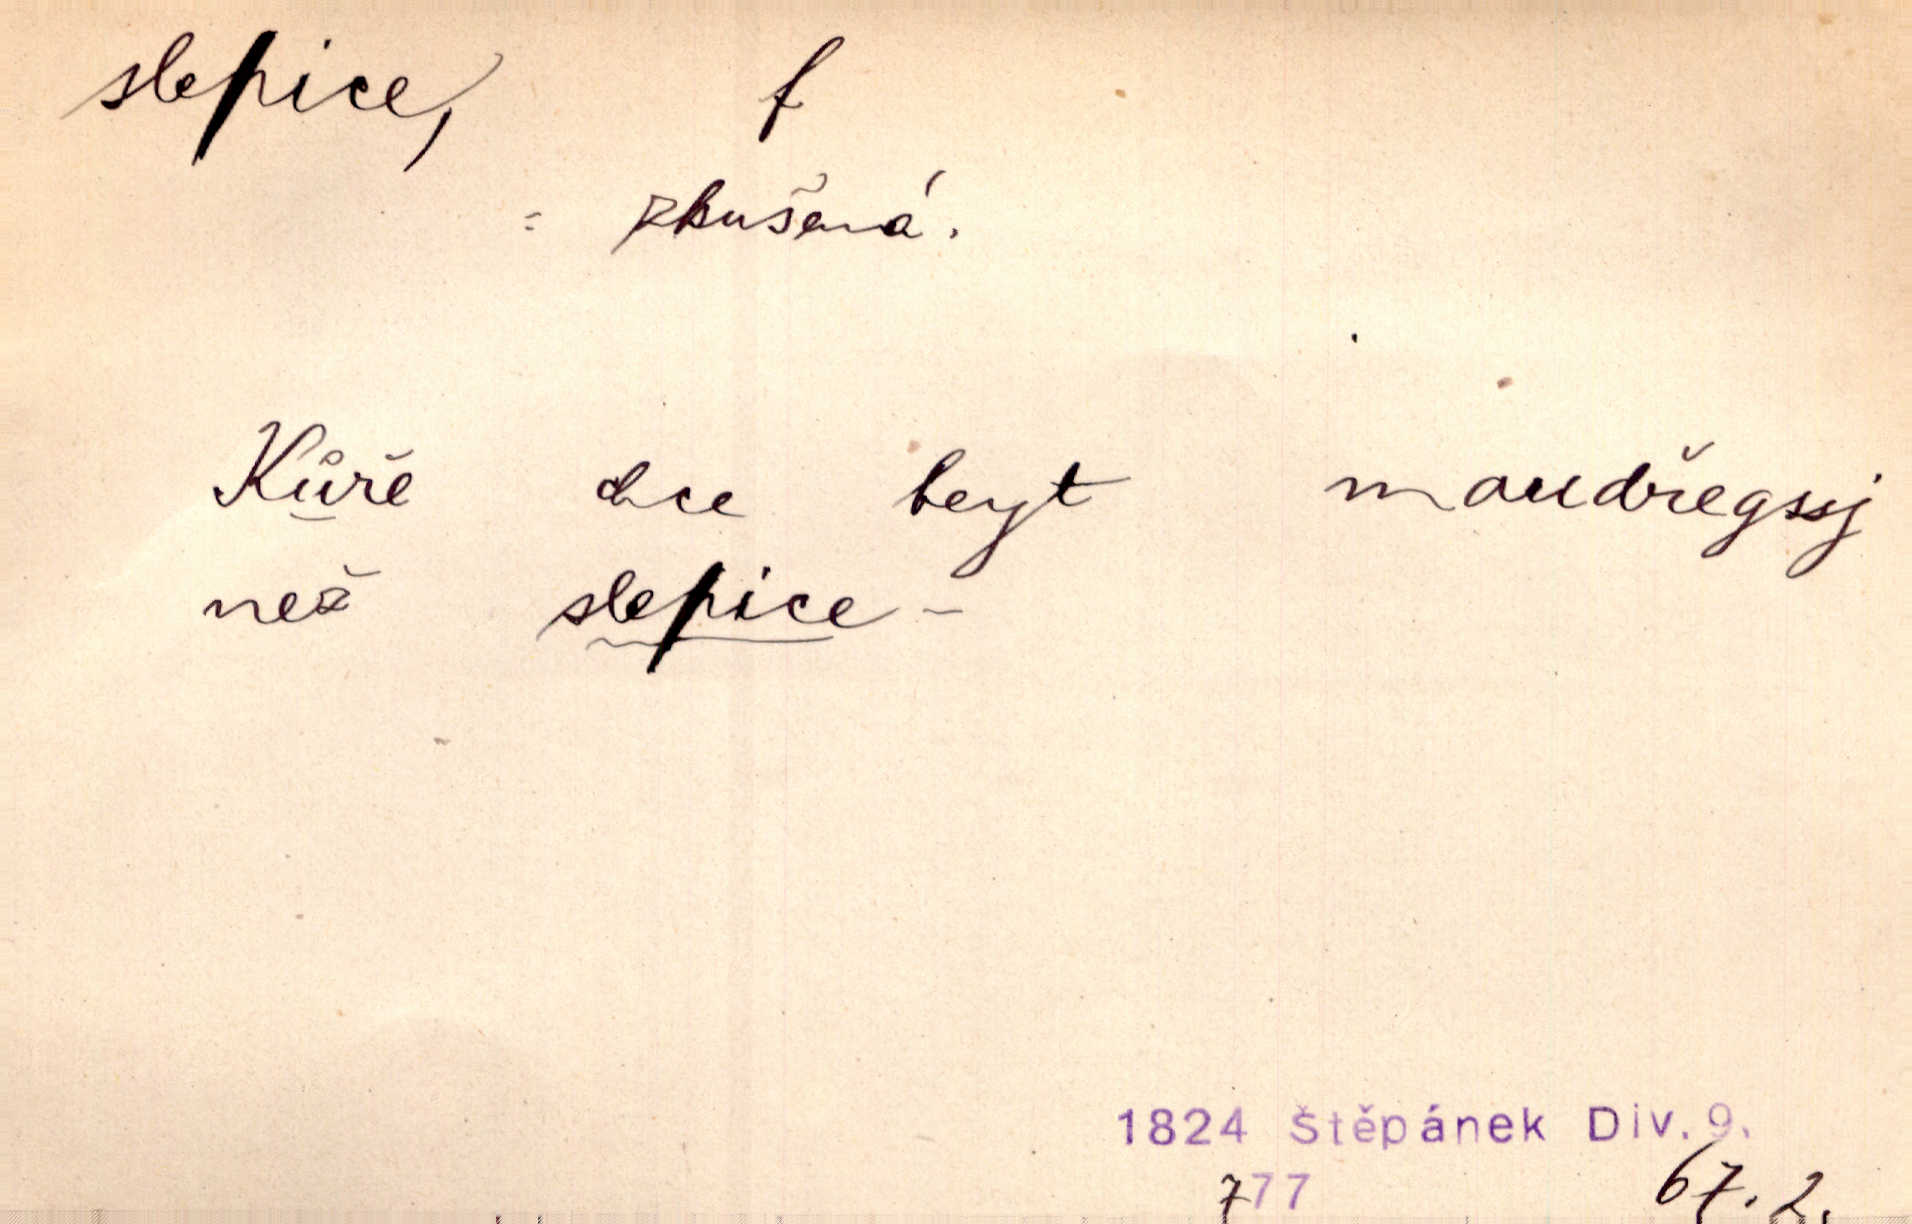 slepice, f
= zkušená.
Kůře chce beyt maudřegssj
než slepice -
1824 Štěpánek Div. 9.
777 67. 2.